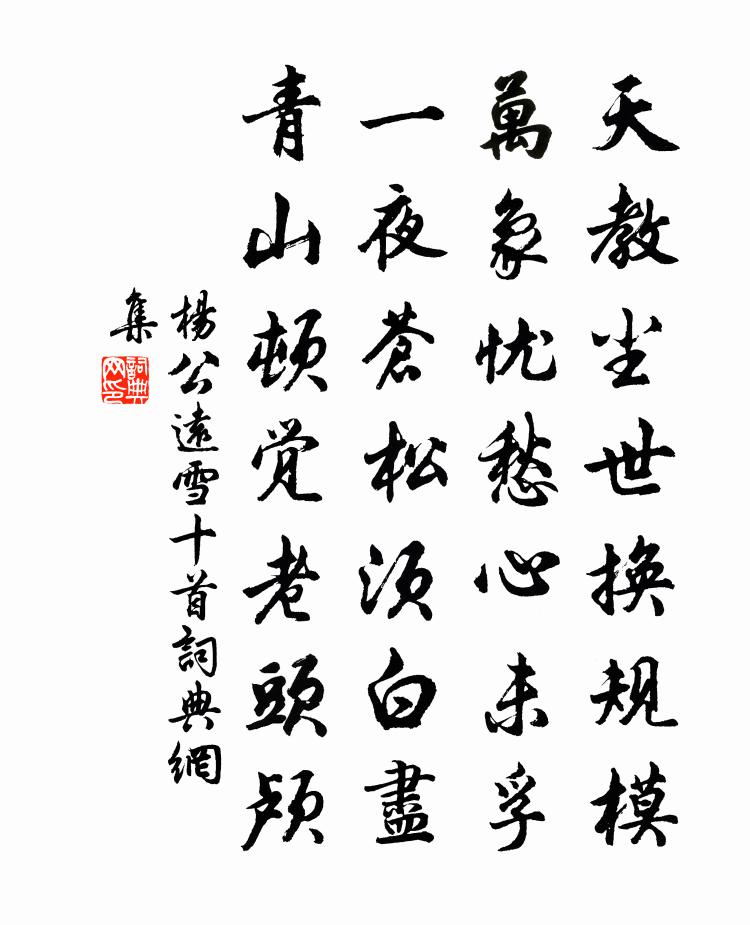 天教尘世换规模
萬象忧愁心未孚
一夜蒼松须白盡
青山顿觉老頭颅
楊公遠雪十首詞典網
集
詞典网印